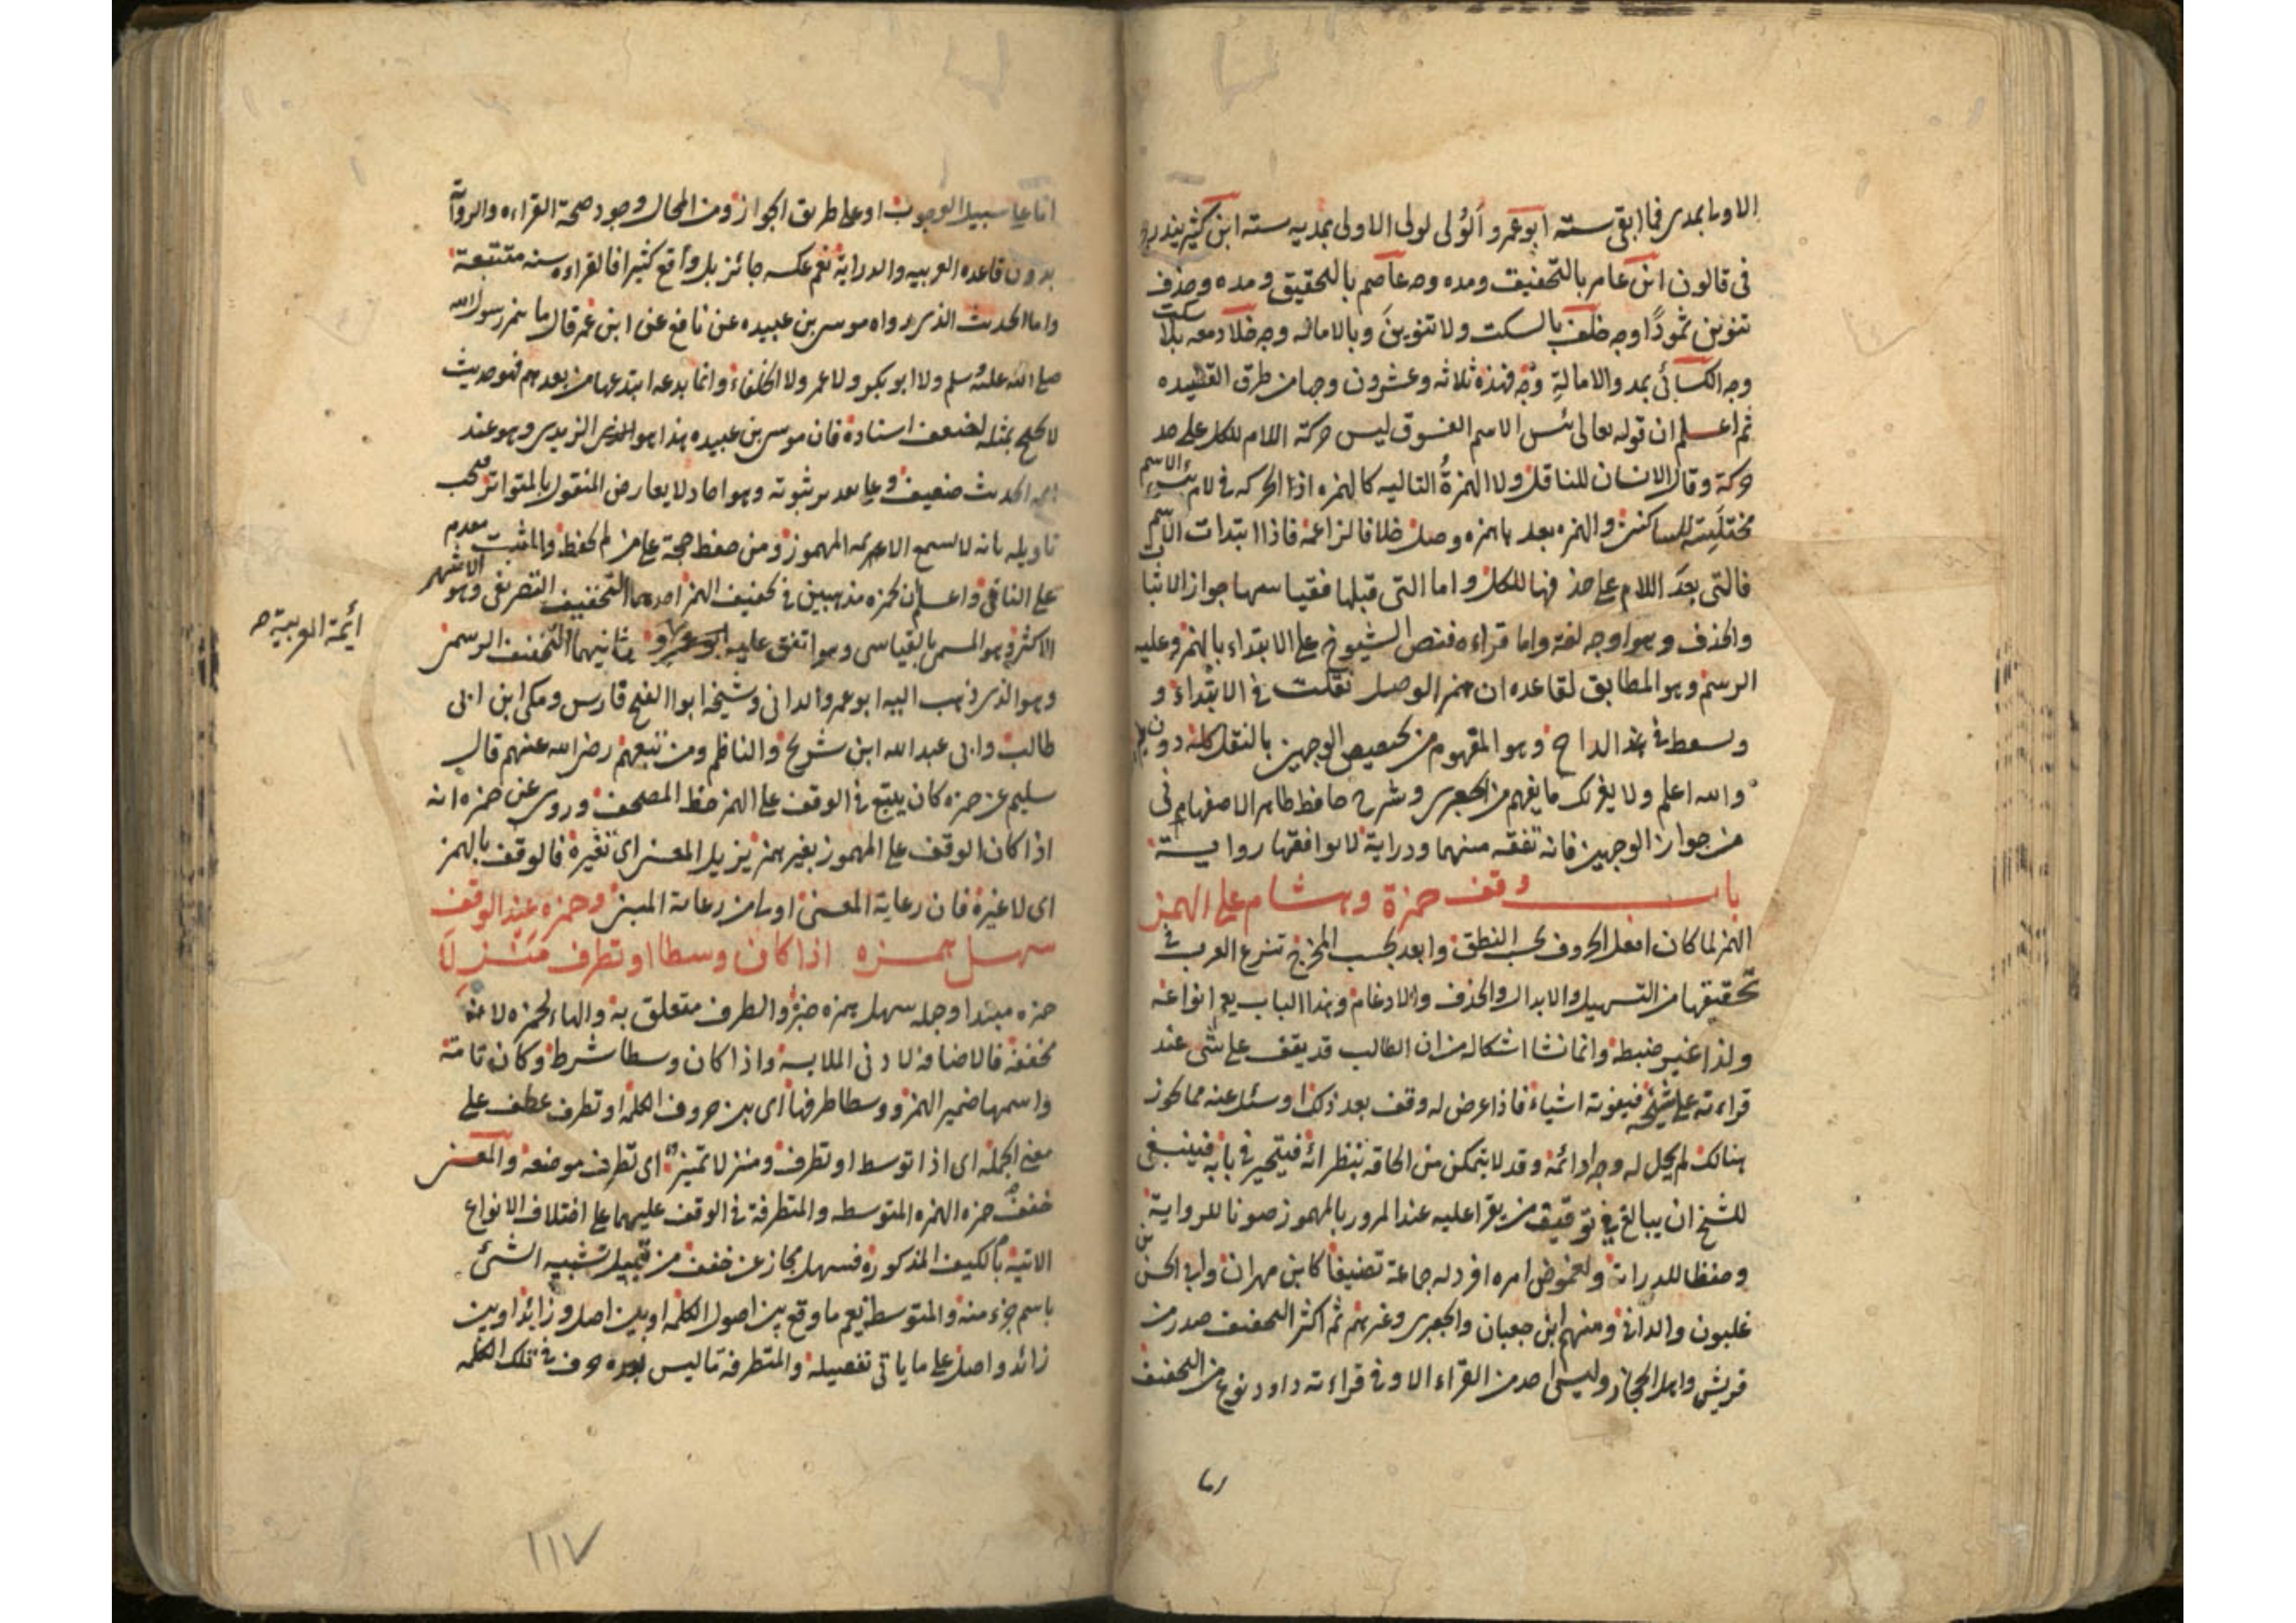 الاولى بمدى فما ابقى ستة ابو عمرو الولى لولى الاولى بمديه ستة ابن كثير يندرج
فى قالون ابن عامر بالتخفيف ومده وجه عاصم بالتحقيق ومده وحذف
تنوين ثمودا وجه خلف بالسكت ولا تنوين وبالامالة وجه خلاد معه بلا سكت
وجه الكسائى بمد والامالة وجه فهذه ثلاثه وعشرون وجها من طرق القصيده
ثم اعلم ان قوله تعالى بئس الاسم الفسوق ليس حركة اللام للكل على حد
حركة وقال الانسان للناقل ولا الهمزة التاليه كالهمزه اذ الحركه فى لام بئس الاسم
مجتلبة للساكنين والهمزه بعدها همزه وصل خلافا لزاعمه فاذا ابتدات الاسم
فالتى بعد اللام على حذفها للكل واما التى قبلها فقياسها جواز الاثبات
والحذف وهو اوجه لغة واما قراءه فنص الشيوخ على الابتداء بالهمز وعليه
الرسم وهو المطابق لقاعده ان همز الوصل نقلت فى الابتداء و
وسقط فى هذا الداخ وهو المفهوم من تخصيص الوجهين بالنقل كله دون
والله اعلم ولا يغرنك ما يفهم من الجعبرى وشرح حافظ طاهر الاصفهانى
من جواز الوجهين فانه تفقه منهما ودراية لا توافقها رواية
باب وقف حمزة وهشام على الهمز
الهمز لما كان اثقل الحروف بحسب النطق وابعد بحسب المخرج تنوع العرب فى
تحقيقها من التسهيل والابدال والحذف والادغام وهذا الباب يعم انواعه
ولذا عسر ضبطه وانما نشا اشكاله من ان الطالب قد يقف على شئ عند
قراءته على شيخ فيفوته اشياء فاذا عرض له وقف بعد ذلك او سئل عنه مما يجوز
هنالك لم يحل له وجه ادائه وقد لا يتمكن من الحاقه بنظرائه فيتحير فى بابه فينبغى
للشيخ ان يبالغ فى توقيف من يقرا عليه عند المرور بالمهموز صونا للرواية
وحفظا للدراية ولغموض امره افرد له جماعة تصنيفا كابن مهران وابى الحسن بن
غلبون والدانى ومنهم ابن جعبان والجعبرى وغيرهم ثم اكثر التخفيف صدر من
قريش واهل الحجاز وليس احد من القراء الا وفى قراءته داود نوع من التخفيف
اما على سبيل الوجوب او على طريق الجواز ومن المحال وجود صحة القراءه والرواية
بدون قاعده العربيه والدراية نعم عكسه جائز بل واقع كثيرا فالقراءه سنة متبعة
واما الحديث الذى رواه موسى بن عبيده عن نافع عن ابن عمر قال ما همز رسول الله
صلى الله عليه وسلم ولا ابو بكر ولا عمر ولا الخلفاء وانما بدعه ابتدعها من بعدهم فهو حديث
لا يحتج بمثله لضعف اسناده فان موسى بن عبيده هذا هو الزيدى وهو عند
ائمة الحديث ضعيف وعلى تقدير ثبوته وهو احاد لا يعارض المنقول بالمتواتر فيجب
تاويله بانه لا يسمع الاعربه المهموز ومن حفظ حجة على من لم يحفظ والمثبت مقدم
على النافى واعلم ان لحمزه مذهبين فى تخفيف الهمز احدهما التخفيف التصريفى وهو الاشهر
الاكثر وهو المسمى بالقياسى وهو اتفق عليه ثانيهما التخفيف الرسمى
ائمة العربية صح
وهو الذى ذهب اليه ابو عمرو الدانى وشيخه ابو الفتح فارس ومكى ابن ابى
طالب وابى عبد الله ابن شريح والناظم ومن تبعهم رضى الله عنهم قال
سليم عن حمزه كان يتبع فى الوقف على الهمز خط المصحف وروى عن حمزه انه
اذا كان الوقف على المهموز بغير همز يزيل المعنى اى تغيره فالوقف بالهمز
اى لا غيره فان رعاية المعنى اولى من رعاية المبنى وحمزه عند الوقف
سهل همزه اذا كان وسطا او تطرف منزلا
حمزه مبتدا وجمله سهل همزه خبره والطرف متعلق به والهاء لحمزه لا عنه
تخففه فالاضافة لادنى الملابسة واذا كان وسطا شرط وكان تامة
واسمها ضمير الهمز ووسطا طرفها اى بين حروف الكلمه او تطرف عطف على
معنى الجمله اى اذا توسط او تطرف ومنزلا تمييز اى تطرف موضعه والمعنى
خفف حمزه الهمزه المتوسطه والمتطرفة فى الوقف عليهما على اختلاف الانواع
الاتية بالكيف المذكوره فسهل مجاز عن خفف من قبيل تشبيه الشئ
باسم جزء منه والمتوسط يعم ما وقع بين اصول الكلمه او بين اصل وزائد او بين
زائد واصل على ما ياتى تفصيله والمتطرفه ما ليس بعده حرف فى تلك الكلمه
١١٧